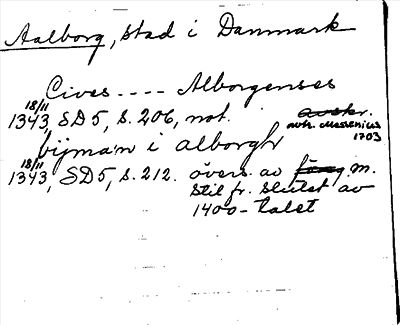 Aalborg, stad i Danmark
Cives .... Alborgenses
18/11
1343, SD5, s. 206, not. avskr.
avh. Messenius
1703
bijmän i alborgh
18/11
1343, SD5, s. 212. övers. av föreg m.
stil fr. slutet av
1400-talet